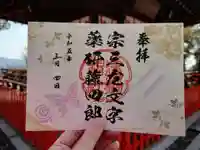 奉拝
宗三左文字
薬研藤四郎
令和五年
月 四日